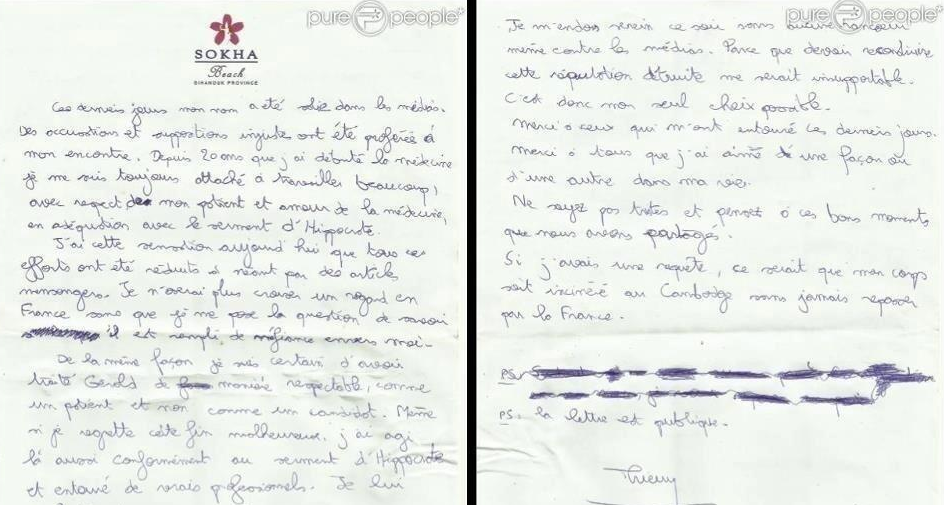 pure people
SOKHA
Beach
SIHANOUK PROVINCE
Ces derniers jours mon nom a été dans les médias.
Des accusations et suppositions injustes ont été proférées à
mon encontre. Depuis 20 ans que j'ai débuté la médecine
je me suis toujours attaché à travailler beaucoup,
avec respect de mon patient et amour de la médecine,
en adéquation avec le serment d'Hippocrate.
J'ai cette sensation aujourd'hui que tous ces
efforts ont été réduits à néant par des articles
mensongers. Je n'oserai plus croiser un regard en
France sans que je me pose la question de savoir
il est rempli de méfiance envers moi.
De la même façon je suis certain d'avoir
traité Gérald de manière respectable, comme
un patient et non comme un candidat. Même
si je regrette cette fin malheureuse, j'ai agi
là aussi conformément au serment d'Hippocrate
et entouré de vrais professionnels. Je lui
pure people
Je m'endors serein ce soir sans aucune rancoeur
même contre les médias. Parce que devoir reconstruire
cette réputation détruite me serait insupportable.
C'est donc mon seul choix possible.
Merci à ceux qui m'ont entouré ces derniers jours.
Merci à tous que j'ai aimé d'une façon ou
d'une autre dans ma vie.
Ne soyez pas tristes et pensez à ces bons moments
que nous avons partagés.
Si j'avais une requête, ce serait que mon corps
soit incinéré au Cambodge sans jamais repasser
par la France.
PS:
PS: la lettre est publique.
Thierry